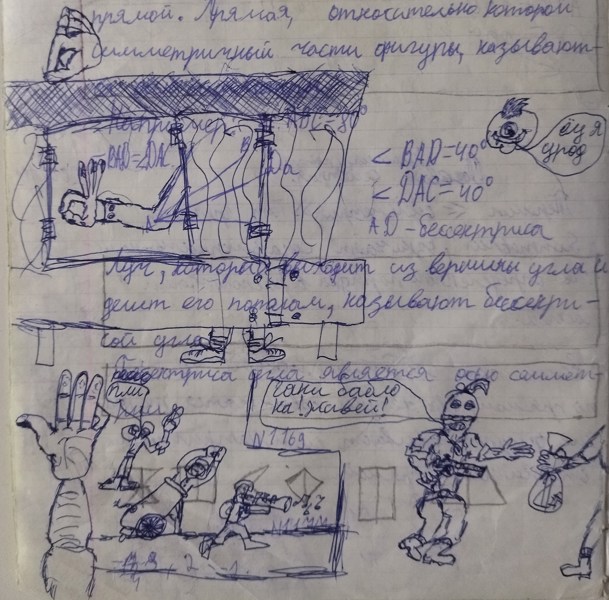 прямой. Прямая, относительно которой
симметричный части фигуры, называют-
Например ADC=80°
∠BAD=∠DAC
B
D
A
∠BAD=40°
∠DAC=40°
AD-бессектриса
ой я
урод
Луч, который выходит из вершины угла и
делит его пополам, называют бессектри-
сой угла
Бессектриса угла является осью симмет-
рии
пли
Гани бабло
на! Живей!
N1169